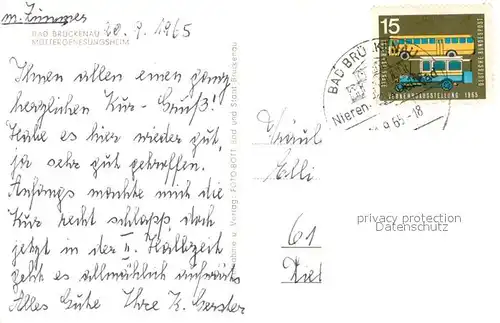 m. Zimmer
20. 9. 1965
BAD BRÜCKENAU
MÜTTERGENESUNGSHEIM
Ihnen allen einen ganz
herzlichen Kur-Gruß!
Habe es hier wieder gut,
ja sehr gut getroffen.
Anfangs machte mich die
Kur recht schlapp, doch
jetzt in der II. Halbzeit
geht es allmählich aufwärts
Alles Gute Ihre K. Gerster
u. Verlag: FOTO-BOTT Bad und Stadt Brückenau
15
DEUTSCHE BUNDESPOST
VERKEHRSAUSSTELLUNG 1965
BAD BRÜCKENAU
Nieren-
.9.65-18
Fräul
Elli
61
privacy protection
Datenschutz